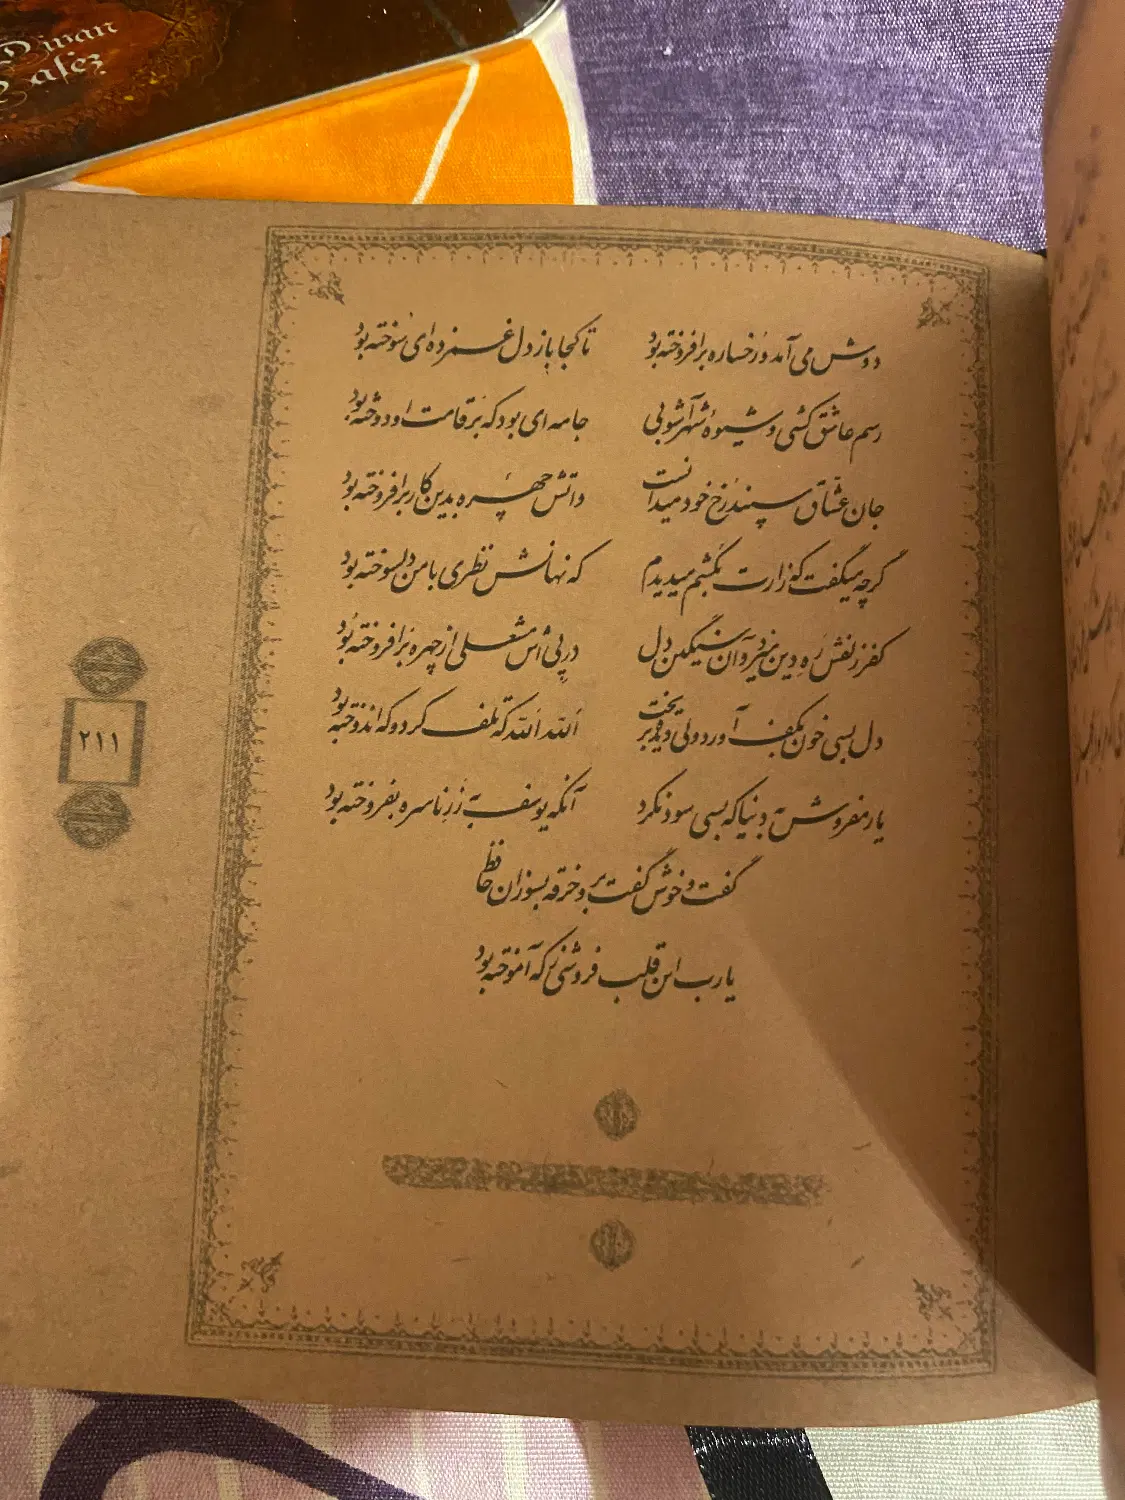 Diwan
Hafez
دوش می آمد و رخساره برافروخته بود تا کجا باز دل غمزده ای سوخته بود
رسم عاشق کشی و شیوهٔ شهرآشوبی جامه ای بود که بر قامت او دوخته بود
جان عشاق سپند رخ خود میدانست واتش چهره بدین کار برافروخته بود
گرچه میگفت که زارت بکشم میدیدم که نهانش نظری با من دلسوخته بود
کفر زلفش ره دین میزد و آن سنگین دل در پی اش مشعلی از چهره برافروخته بود
دل بسی خون بکف آورد ولی دیده بریخت الله الله که تلف کرد و که اندوخته بود
یار مفروش به دنیا که بسی سود نکرد آنکه یوسف به زر ناسره بفروخته بود
گفت و خوش گفت برو خرقه بسوزان حافظ
یارب این قلب فروشی ز که آموخته بود
۲۱۱